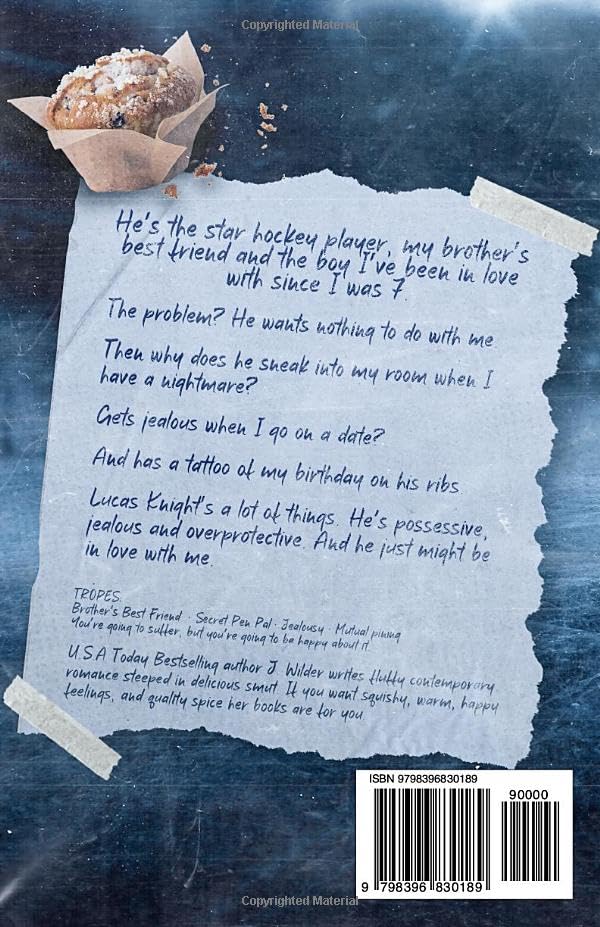 Copyrighted Material
He's the star hockey player, my brother's
best friend and the boy I've been in love
with since I was 7.
The problem? He wants nothing to do with me.
Then why does he sneak into my room when I
have a nightmare?
Gets jealous when I go on a date?
And has a tattoo of my birthday on his ribs.
Lucas Knight's a lot of things. He's possessive,
jealous and overprotective. And he just might be
in love with me.
TROPES:
Brother's Best Friend · Secret Pen Pal · Jealousy · Mutual pining
You're going to suffer, but you're going to be happy about it.
U.S.A Today Bestselling author J. Wilder writes fluffy contemporary
romance steeped in delicious smut. If you want squishy, warm, happy
feelings, and quality spice her books are for you.
ISBN 9798396830189
90000
9 798396 830189
Copyrighted Material